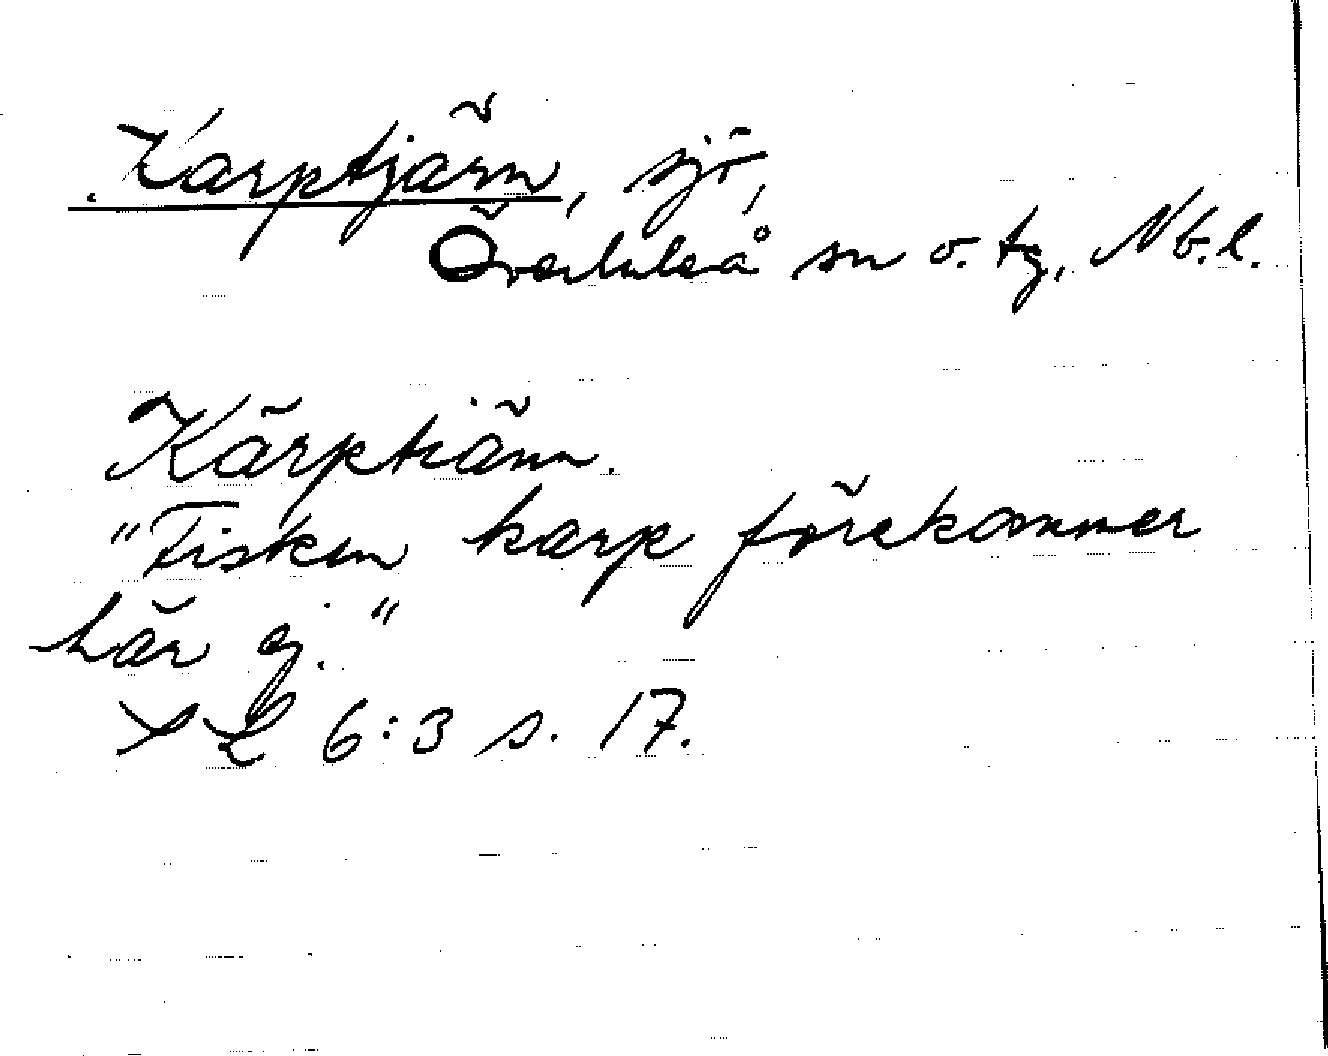 Karptjärn, sjö,
Överluleå sn o. tg, Nb.l.
Kärptiänn.
"Fisken karp förekommer
här ej."
XL 6:3 s. 17.